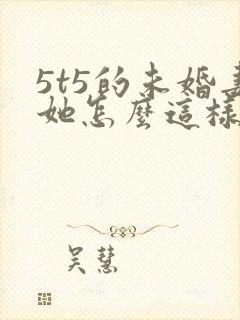 5t5的未婚妻
她怎麼這樣
吴慧